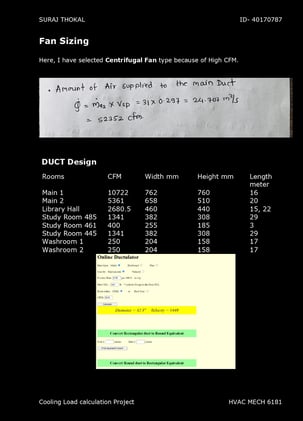 SURAJ THOKAL ID- 40170787
Fan Sizing
Here, I have selected Centrifugal Fan type because of High CFM.
• Amount of Air supplied to the main Duct
= 31 x 0.797 = 24.707 m³/s
= 52352 cfm
DUCT Design
Rooms CFM Width mm Height mm Length meter
Main 1 10722 762 760 16
Main 2 5361 658 510 20
Library Hall 2680.5 460 440 15, 22
Study Room 485 1341 382 308 29
Study Room 461 400 255 185 3
Study Room 445 1341 382 308 29
Washroom 1 250 204 158 17
Washroom 2 250 204 158 17
Online Ductulator
Convert Rectangular duct to Round Equivalent
Convert Round duct to Rectangular Equivalent
Cooling Load calculation Project HVAC MECH 6181